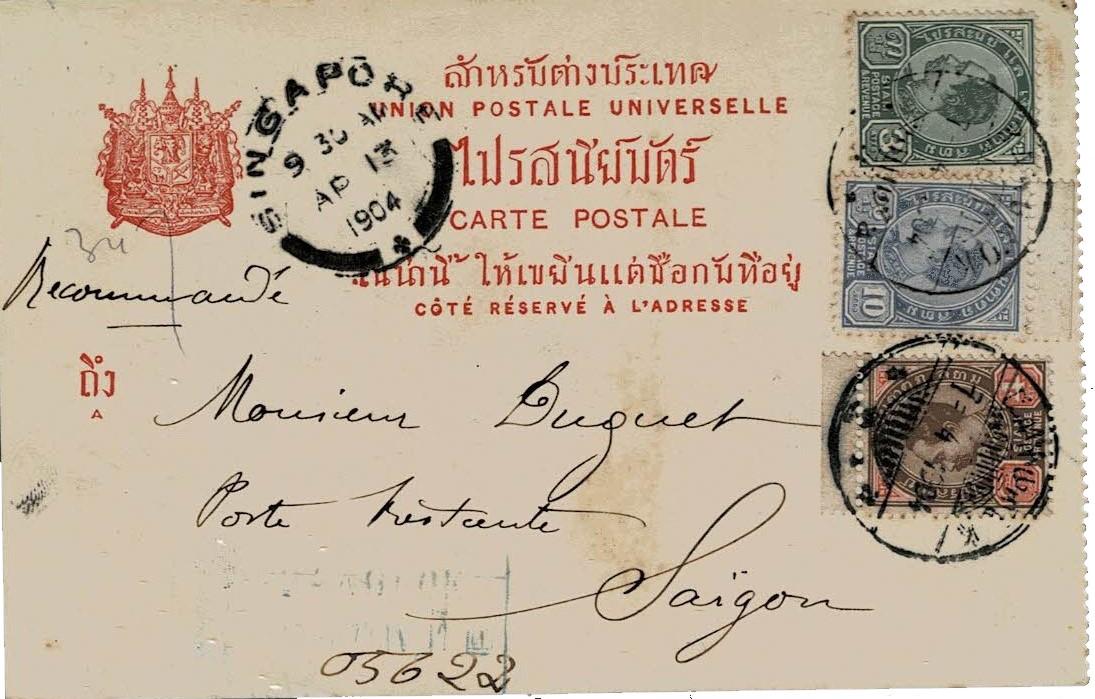 สำหรับต่างประเทศ
UNION POSTALE UNIVERSELLE
ไปรสนียบัตร์
CARTE POSTALE
ในน่านี้ ให้เขยีนแต่ชื่อกับที่อยู่
CÔTÉ RÉSERVÉ À L'ADRESSE
SINGAPORE
9 30 AM
AP 13
1904
34
Recommandé
ถึง
A
Monsieur Duguet
Poste restante
Saïgon
05622
SIAM
POSTAGE
&REVENUE
SIAM
POSTAGE
&REVENUE
10